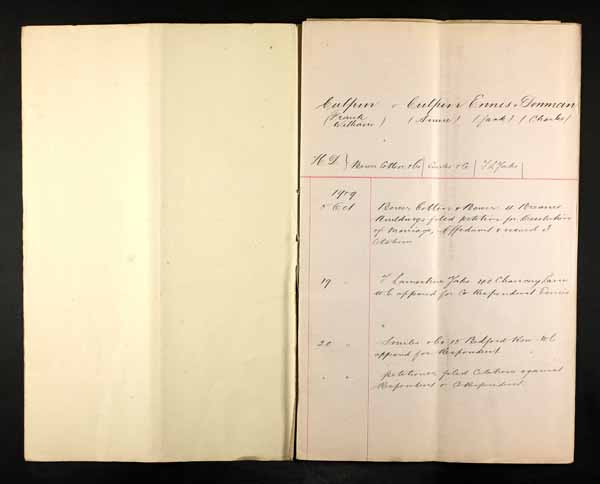 Culpin v Culpin Ennis & Denman
(Frank William) (Annie) (Jack) (Charles)
H.D. Bower Cotton & Co T L Yates
1909
5 Oct Bower Cotton & Bower 4 Breams
Buildings filed petition for dissolution
of Marriage, Affidavit & issued 3
Citations
19 " T Lamartine Yates 40 Chancery Lane
W C appeared for Co-Respondent Ennis
20 " & Co 15 Bedford Row W C
appeared for Respondent
" " Petitioner filed Citations against
Respondent & Co Respondent